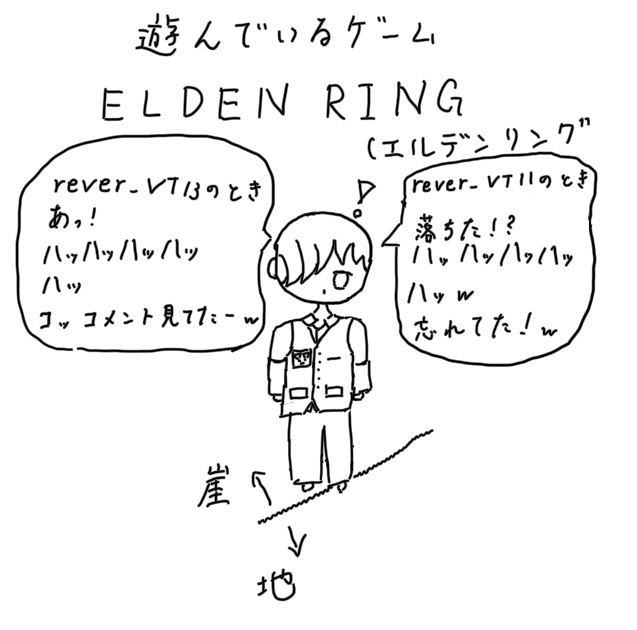 遊んでいるゲーム
ELDEN RING
(エルデンリング
rever_VT13のとき
あっ!
ハッハッハッハッ
ハッ
コッコメント見てたーw
rever_VT11のとき
落ちた!?
ハッハッハッハッ
ハッw
忘れてた!w
崖
地